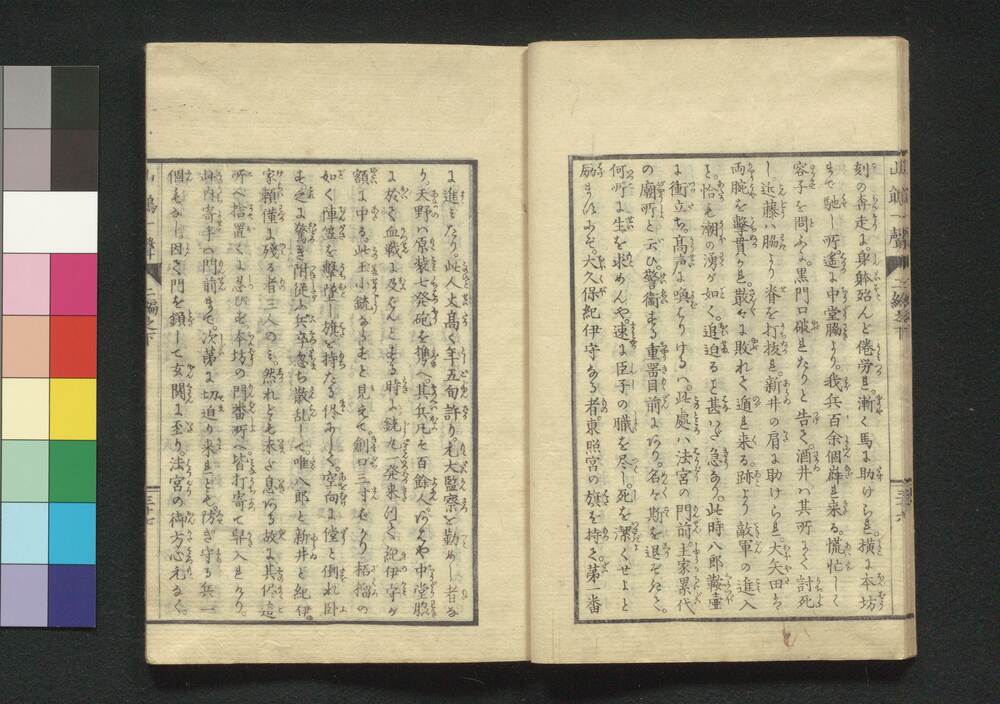 刻の奔走に。身躰殆んど倦労し。漸く馬に助けられ。横に本坊
まで馳し所遙に中堂脇より。我兵百余個辟れ来る。慌忙しく
容子を問ふに。黒門口破れたりと告ぐ。酒井ハ其所にて討死
し。近藤ハ脇より脊を打抜れ。新井の肩に助けられ。大矢田は
両腕を撃貫かれ散々に敗れて遁れ来る。跡より敵軍の進入
を。恰も潮の湧が如く。追迫ると甚いだ急なり。此時八郎鞍壷
に衝立ち。高声に喚はりけるハ。此處ハ法宮の門前主家累代
の廟所と云ひ。警衛する重器目前にあり。名々斯を退ぞきて。
何所に生を求めんや。速に臣子の職を尽し。死を潔くせよと
励ませバこそ。大久保紀伊守なる者。東照宮の旗を持て。第一番
に進ミたり。此人丈高く年五旬許り。元大監察を勤めし者な
り。天野ハ原装七発砲を携へ。其兵凡そ百餘人。あハや中堂脇
に於て血戦に及ばんとする時に銃丸一発来つて紀伊守が
額に中る。此玉小銃なるもと見えて。創口三寸をかり栝橊の
如く陣笠を撃墜し旗を持たる侭あし〳〵。空向に僵と倒れ臥
す。之に驚き附従ふ兵卒忽ち散乱して。唯八郎と新井と紀伊
家頼僅に残る者三人のミ。然れども未だ息ある故に其侭這
所へ捨置くに忍びず本坊の門番所へ。皆打寄せ舁入れたり。
此内寄手ハ門前まで。次第に切迫り来れども。防ぎ守る兵一
個もなし。因て門を鎖して玄関に至り。法宮の御方心元なく。
二編之下
三十七